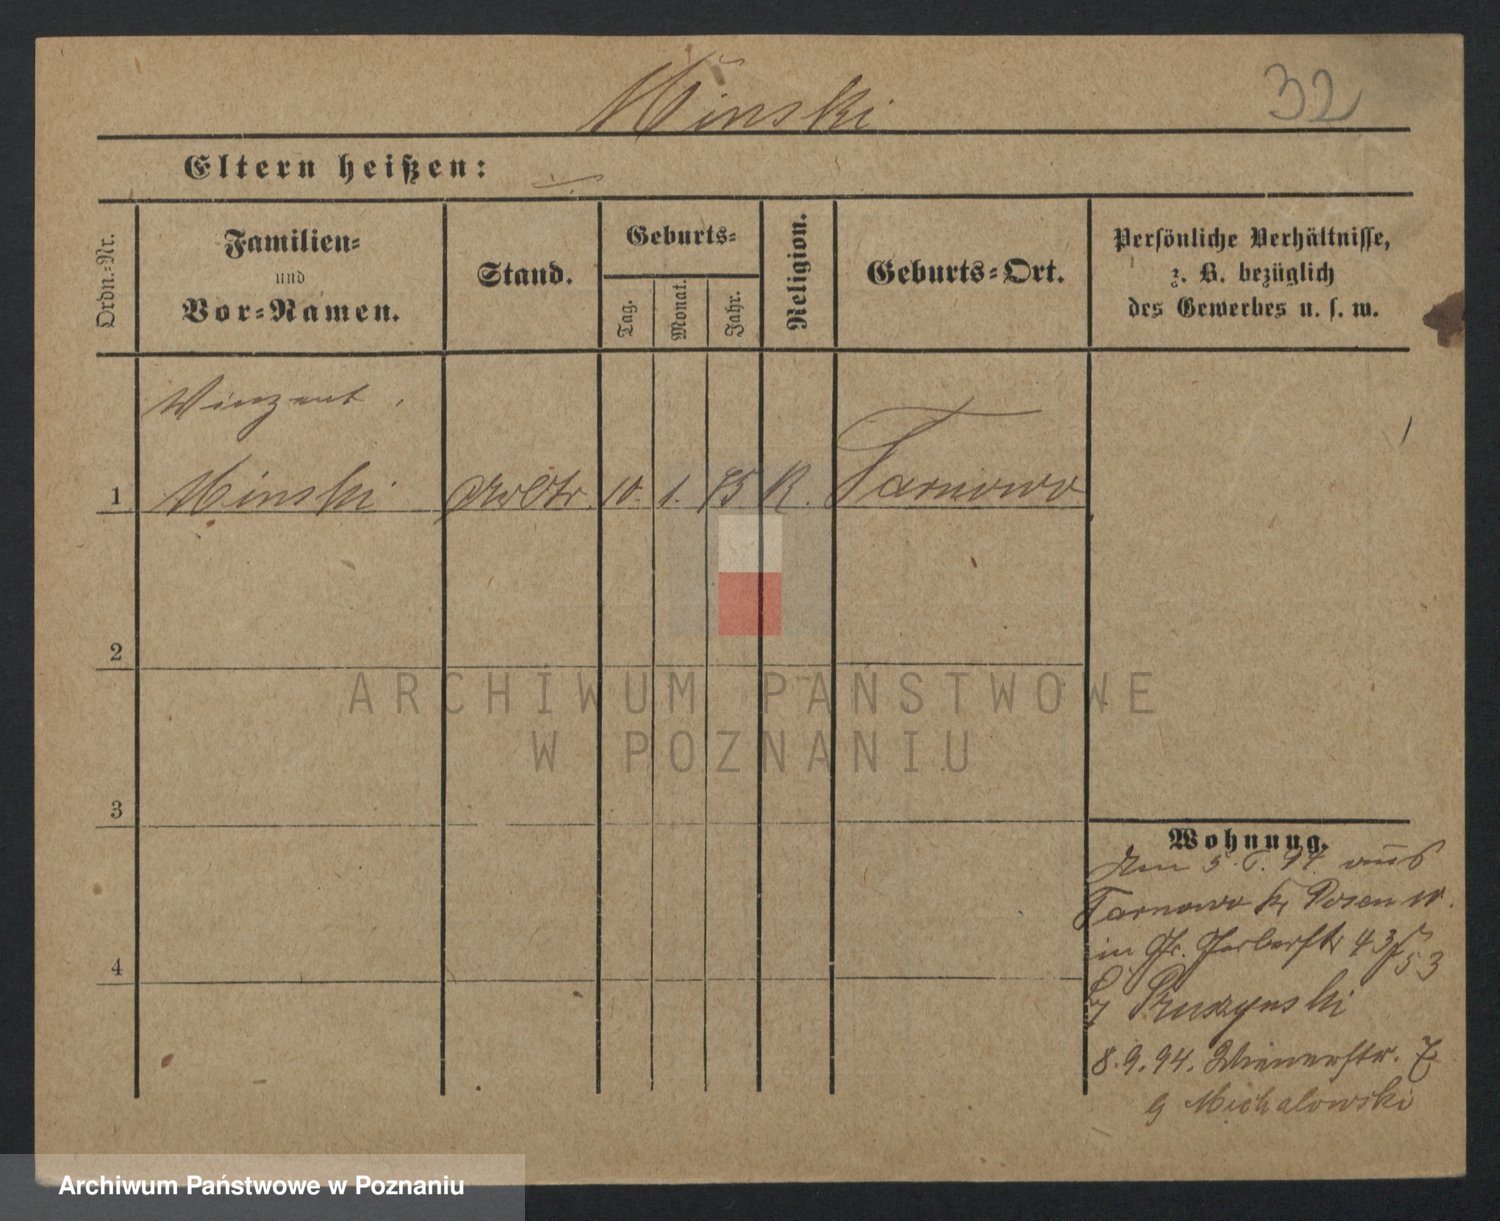 32
Minski
Eltern heißen:
Ordn.-Nr.
Familien-
und
Vor-Namen.
Stand.
Geburts-
Tag.
Monat.
Jahr.
Religion.
Geburts-Ort.
Persönliche Verhältnisse,
z. B. bezüglich
des Gewerbes u. s. w.
Winzent,
1 Minski Arbtr. 10. 1. 75 K. Tarnowo
2
3
4
ARCHIWUM PAŃSTWOWE
W POZNANIU
Wohnung.
94. aus
Tarnowo Kr Posen W.
in Gr. Gerberstr 43/53
Pruszynski
8.9.94. Wienerstr. 7
Michalowski
Archiwum Państwowe w Poznaniu